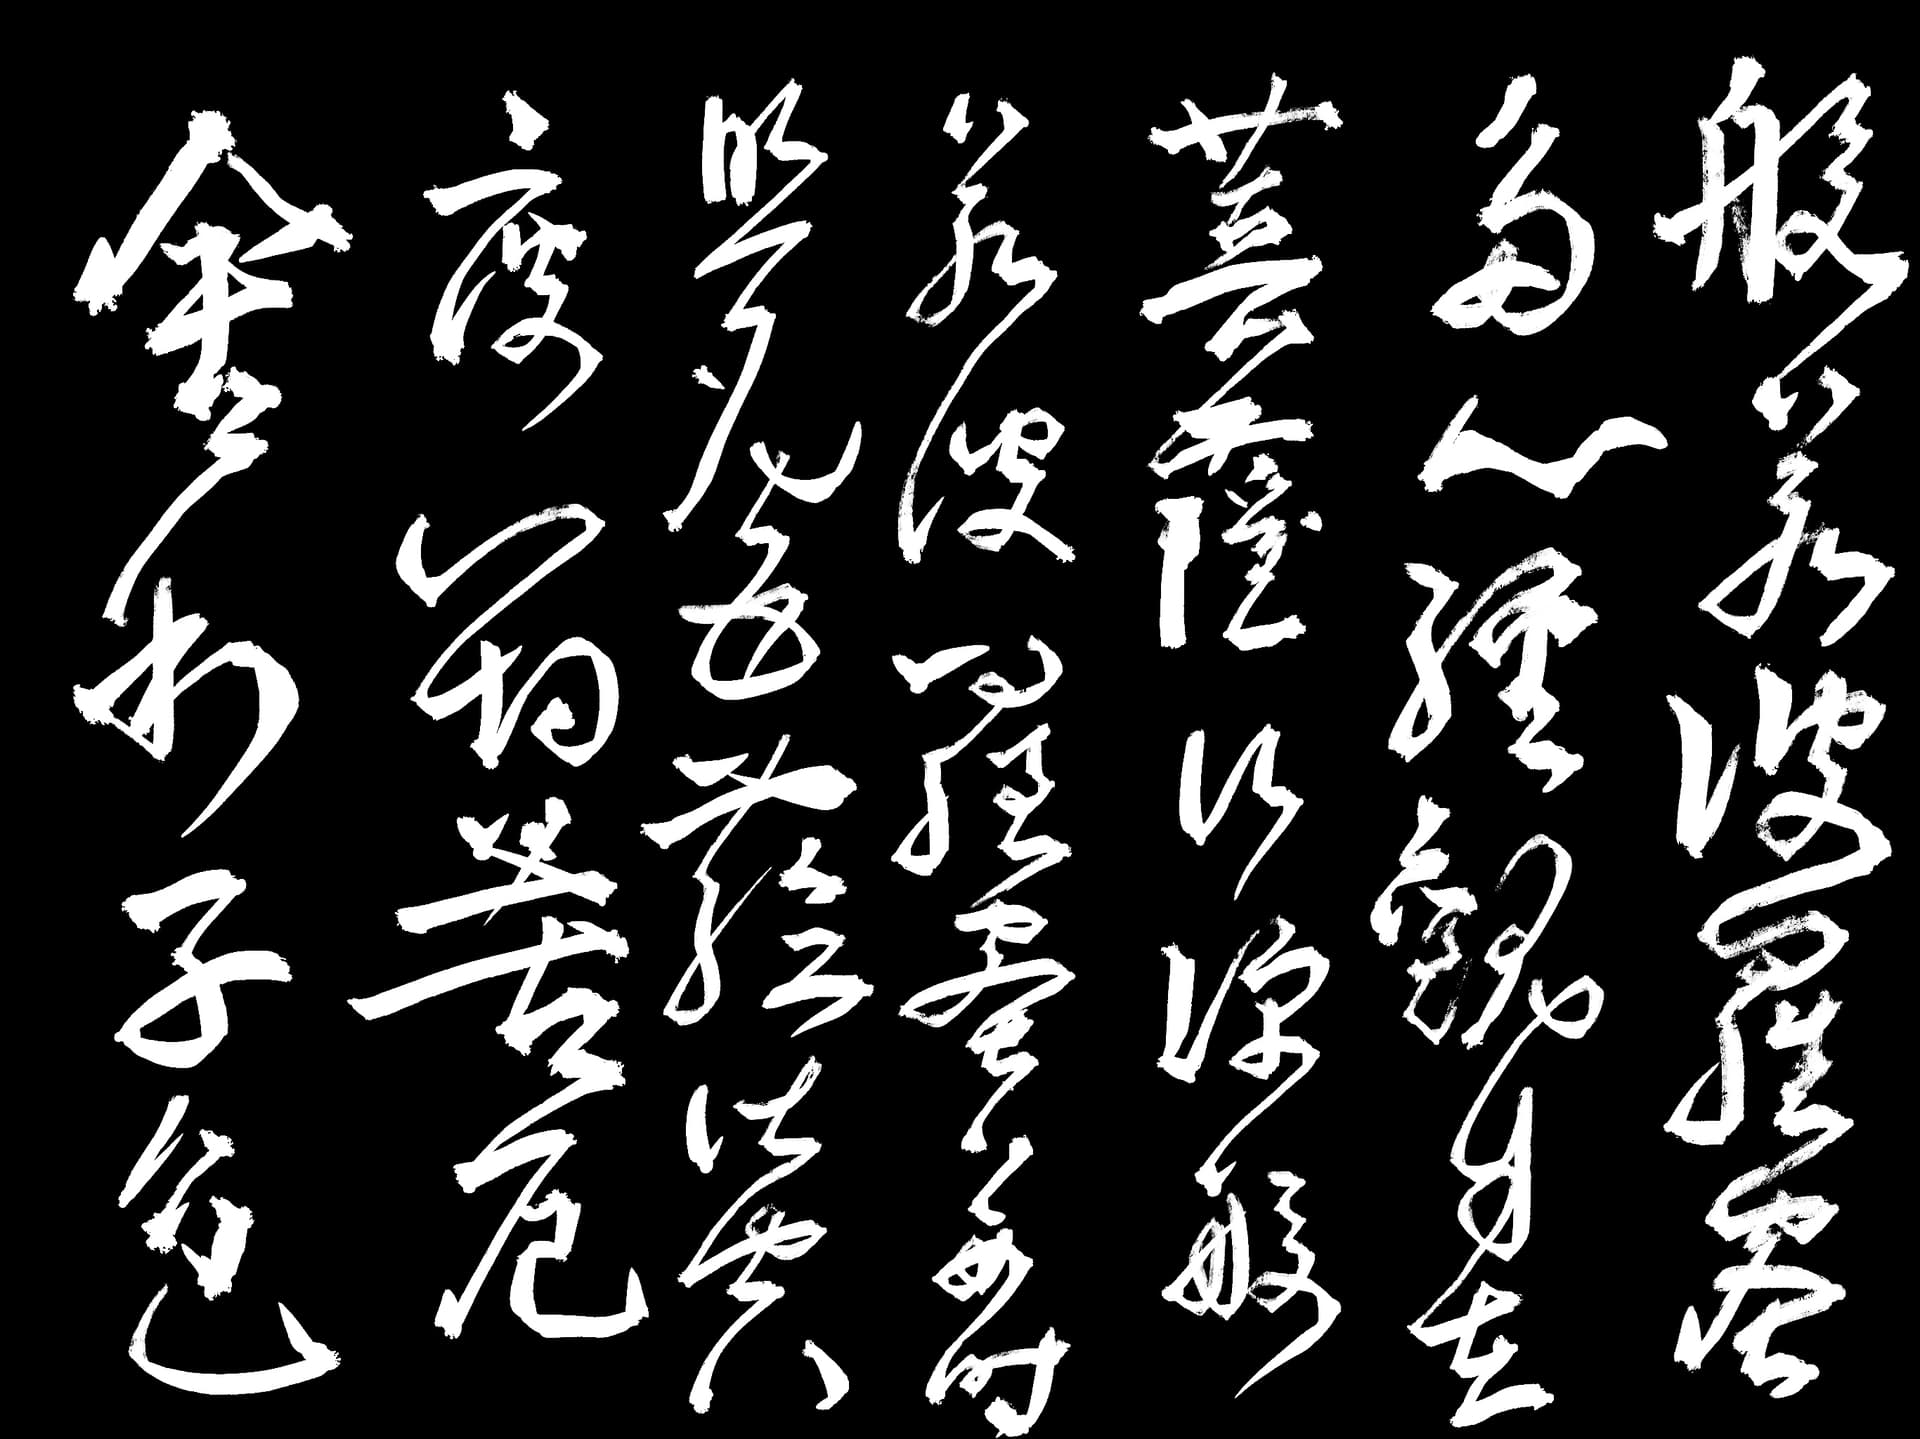 般若波羅蜜
多心經觀自在
菩薩行深般
若波羅蜜多時
照見五蘊皆空
度一切苦厄
舍利子色